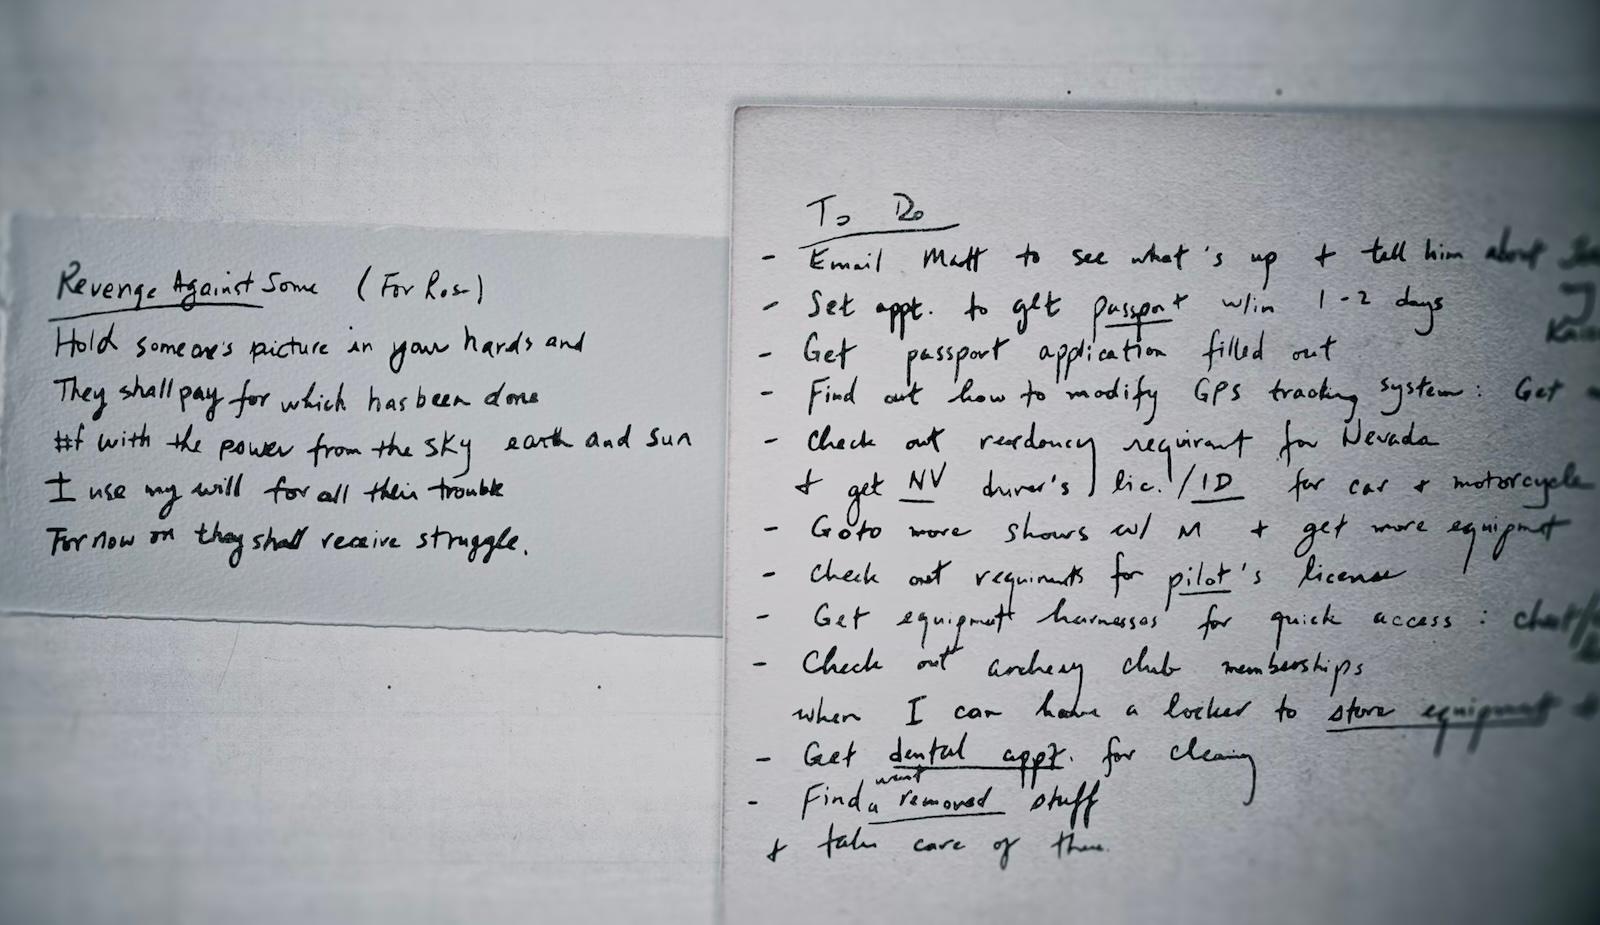 Revenge Against Some (For Ros)
Hold someone's picture in your hands and
They shall pay for which has been done
#f with the power from the sky earth and sun
I use my will for all their trouble
For now on they shall receive struggle.
To Do
- Email Matt to see what's up + tell him about
- Set appt. to get passport w/in 1-2 days
- Get passport application filled out
- Find out how to modify GPS tracking system: Get
- Check out residency for Nevada
+ get NV driver's lic./ID for car + motorcycle
- Go to more shows w/ M + get more equipmt
- Check out for pilot's license
- Get equipmt harnesses for quick access :
- Check out archery club memberships
when I can have a locker to store equipment
- Get dental appt. for cleaning
- Find removed stuff
+ take care of